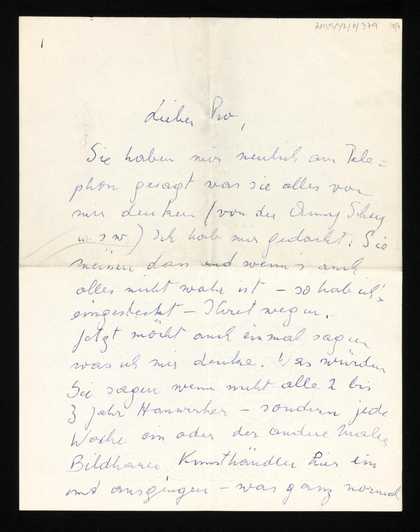 1
Lieber Pro,
Sie haben mir neulich am Tele=
phon gesagt was sie alles von
mir denken (von der
u.s.w.) Ich hab mir gedacht: Sie
müssen das und wenn's auch
alles nicht wahr ist – so hab ich's
eingesteckt – Ihretwegen.
Jetzt möcht auch einmal sagen
was ich mir denke. Was würden
Sie sagen wenn nicht alle 2 bis
3 Jahr – sondern jede
Woche ein oder der andere Maler
Bildhauer Kunsthändler hier ein
und ausgingen – was ganz normal